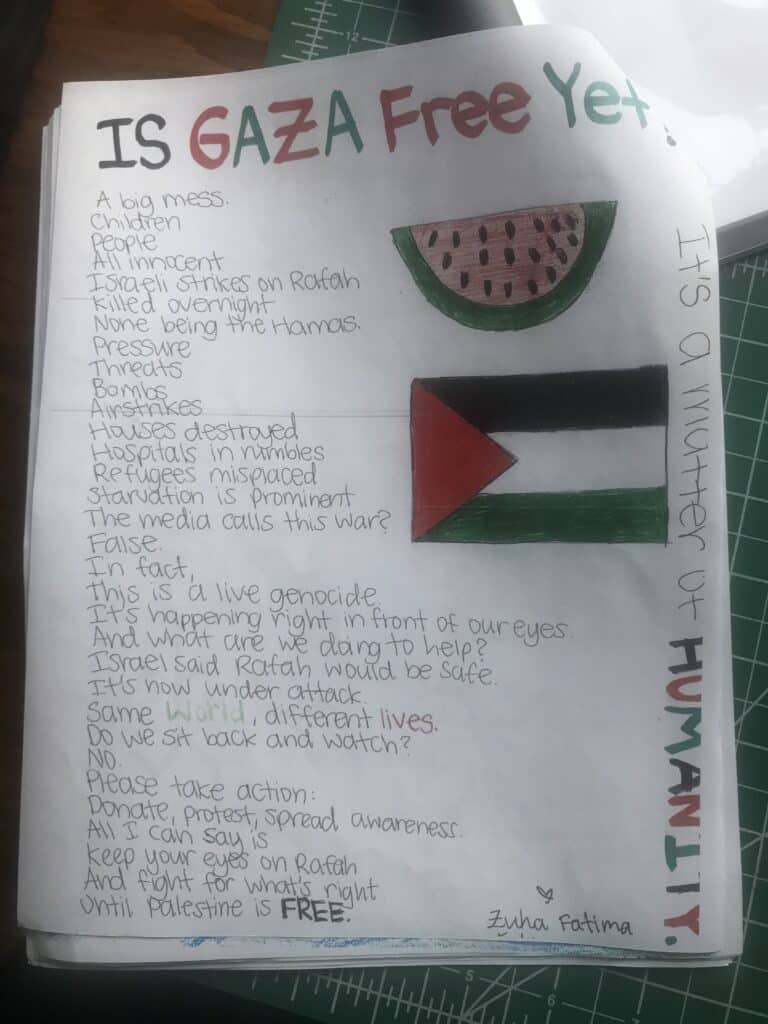 IS GAZA Free Yet?
A big mess.
Children
People
All innocent
Israeli strikes on Rafah
killed overnight
None being the Hamas.
Pressure
Threats
Bombs
Airstrikes
Houses destroyed
Hospitals in rumbles
Refugees misplaced
Starvation is prominent
The media calls this war?
False.
In fact,
This is a live genocide.
It's happening right in front of our eyes.
And what are we doing to help?
Israel said Rafah would be safe.
It's now under attack.
Same World, different lives.
Do we sit back and watch?
NO.
Please take action:
Donate, protest, spread awareness.
All I can say is
keep your eyes on Rafah
And fight for what's right
Until Palestine is FREE.
Zuha Fatima
It's a matter of HUMANITY.
12
5
6